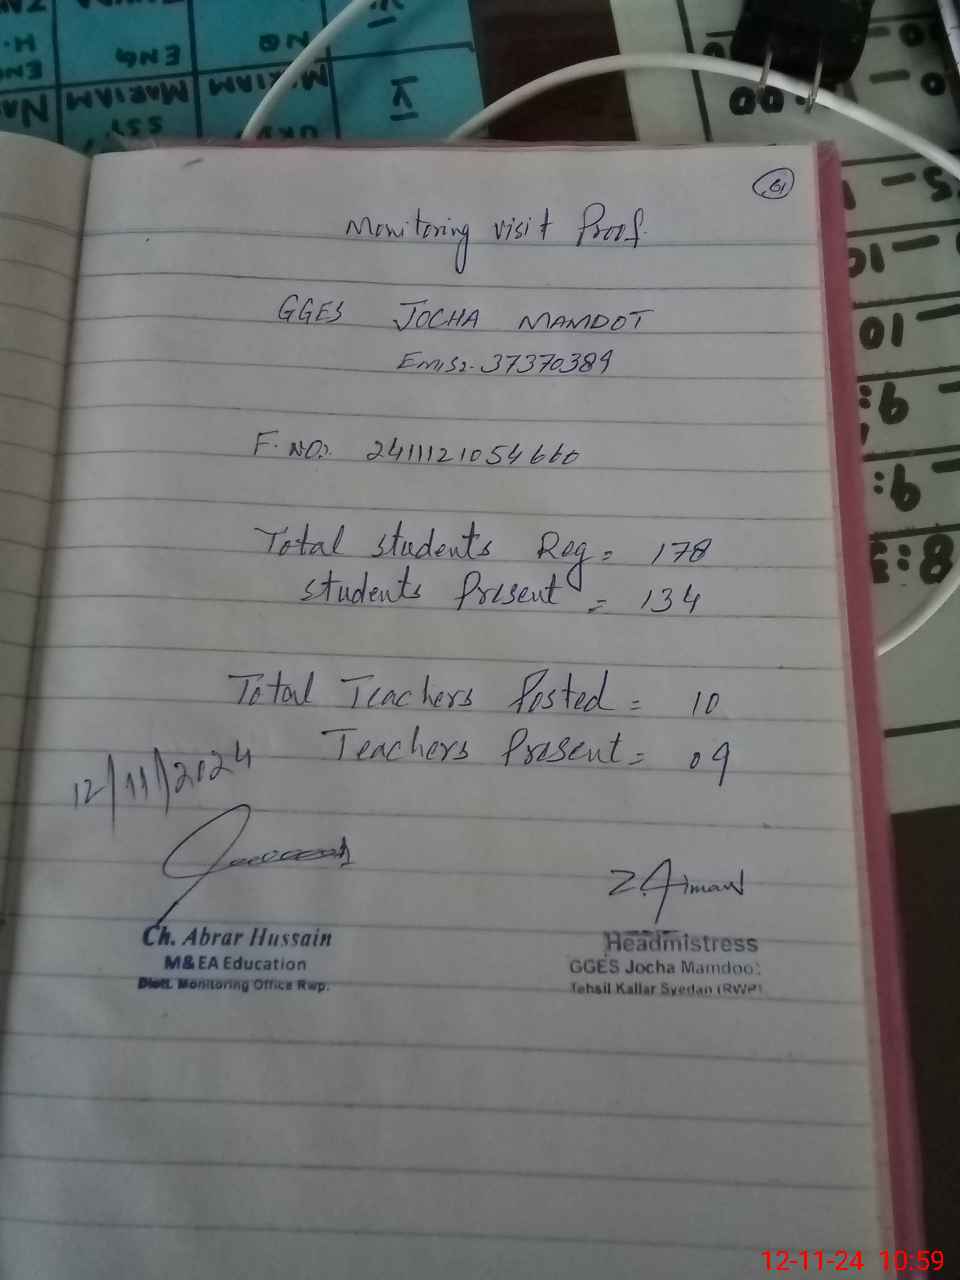 61
Monitoring visit Proof.
GGES JOCHA MAMDOT
Emis:- 37370389
F. NO:. 2411121054660
Total students Reg = 178
students Present = 134
Total Teachers Posted = 10
Teachers Present = 09
12/11/2024
Ch. Abrar Hussain
M&EA Education
Distt. Monitoring Office Rwp.
Z.Aiman
Headmistress
GGES Jocha Mamdoot
Tehsil Kallar Syedan (RWP)
MARIAM
MARIAM
ENG
SST
VI
12-11-24 10:59